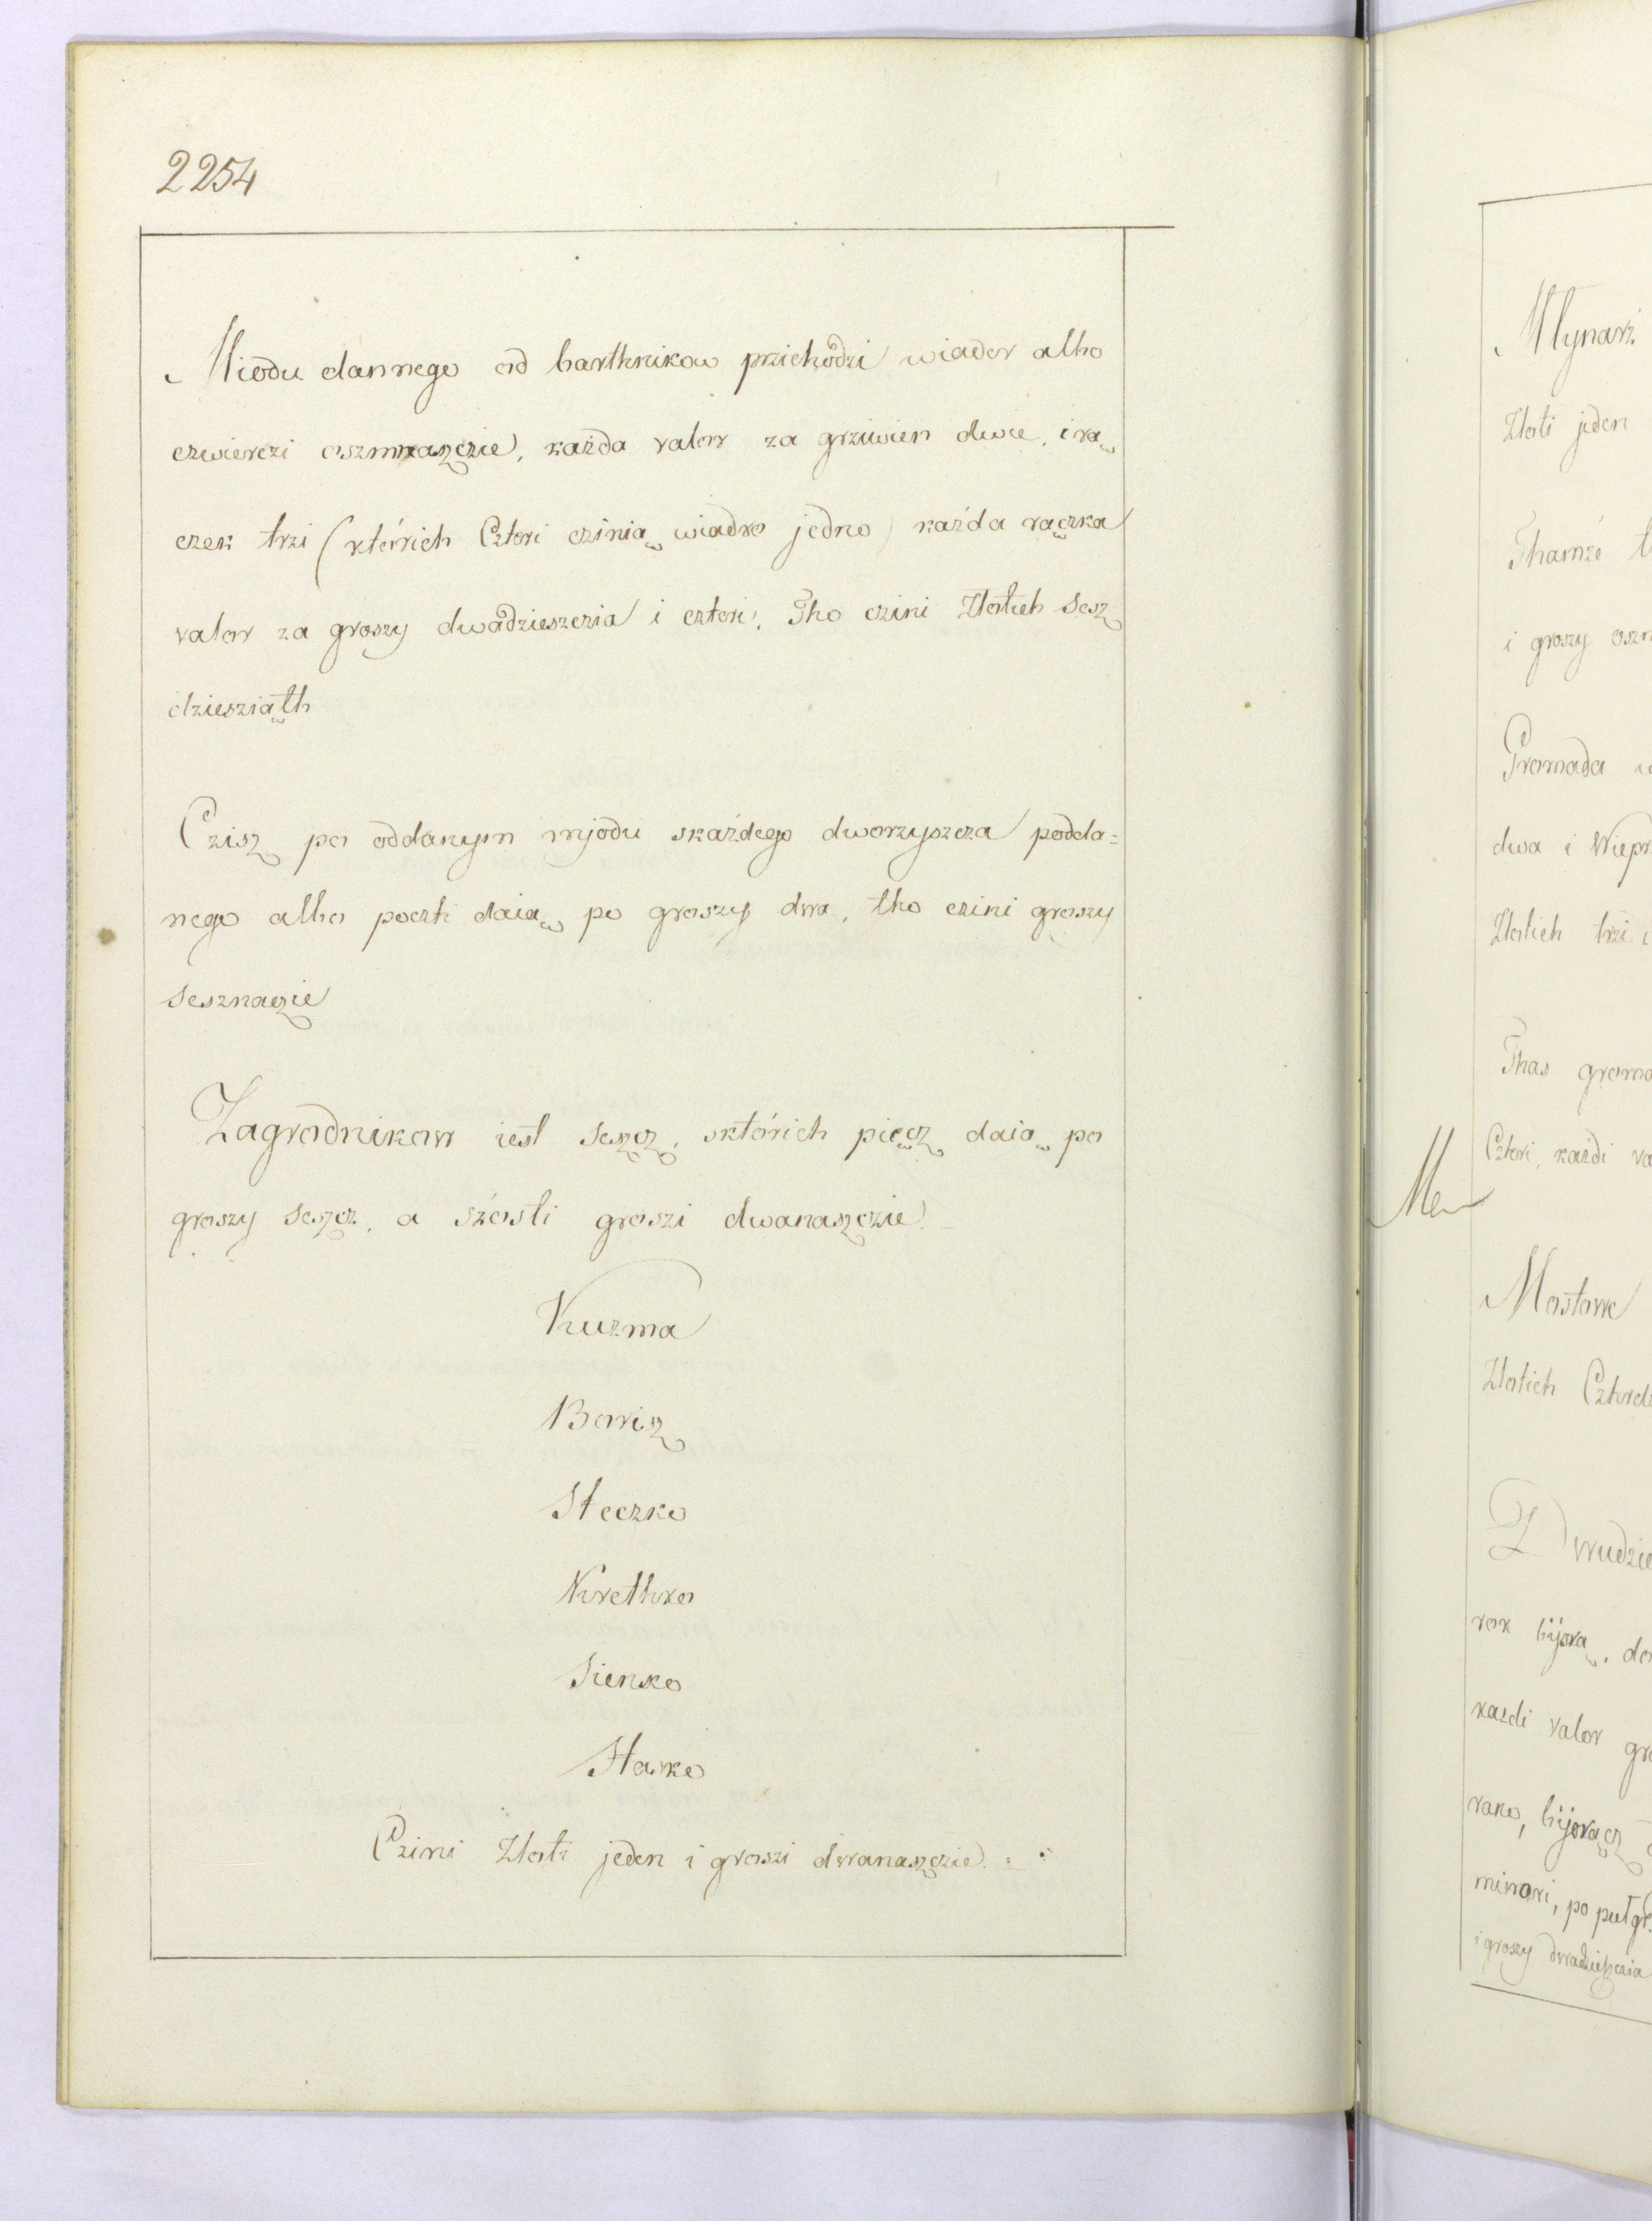 2254
Miodu dannego od barthnikow przichodzi wiader albo
czwierczi oszmnasczie, każda valor za grziwien dwie, i rą
czek trzi (którich Cztori czinią wiadro jedno) każda rączka
valor za groszy dwadzieszczia i cztori. Tho czini Zlotich sesz
dziesziąth
Czisz po oddanym mjodu skażdego dworzyszcza podda=
nego albo poczti daią po groszy dwa, tho czini groszy
sesznaczie
Zagrodnikow iest sescz, sktórich pięcz daią po
groszy sescz, a szósti groszi dwanasczie.
Kuzma
Boris
Steczko
Kurethko
Sienko
Stasko
Czini Zloti jeden i groszi dwanasczie.
Mlynarz
Zloti jeden
Thamże
i groszy
Gromada
dwa i Wiepr
Zlotich trzi i
Thas gromo
Cztori, każdi va
Mostowe
Zlotich Cztord
Z wudzie
rok bijorą, do
kazdi valor gro
rano, bijorącz
minari, po pułgr
i groszy dwadzieszczia